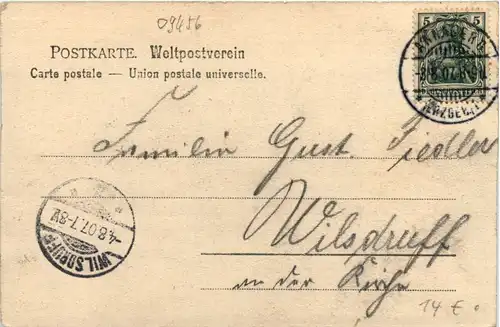 09456
5 5
POSTKARTE. Weltpostverein
Carte postale — Union postale universelle.
Familie Gust. Fiedler
Wilsdruff
an der Kirche
WILSDRUFF
4.8.07.7-8V.
14 €